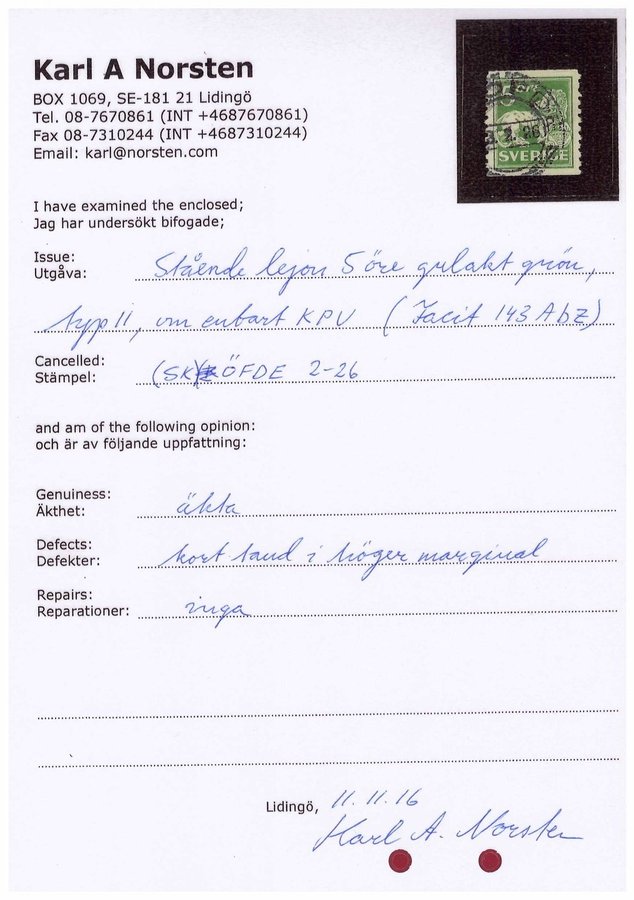 Karl A Norsten
BOX 1069, SE-181 21 Lidingö
Tel. 08-7670861 (INT +4687670861)
Fax 08-7310244 (INT +4687310244)
Email: karl@norsten.com
SVERIGE
I have examined the enclosed;
Jag har undersökt bifogade;
Issue:
Utgåva: Stående lejon 5 öre gulakt grön,
typ II, vm enbart KPV (Facit 143 Abz)
Cancelled:
Stämpel: (SK) ÖFDE 2-26
and am of the following opinion:
och är av följande uppfattning:
Genuiness:
Äkthet: äkta
Defects:
Defekter: kort tand i höger marginal
Repairs:
Reparationer: inga
Lidingö, 11.11.16
Karl A. Norsten